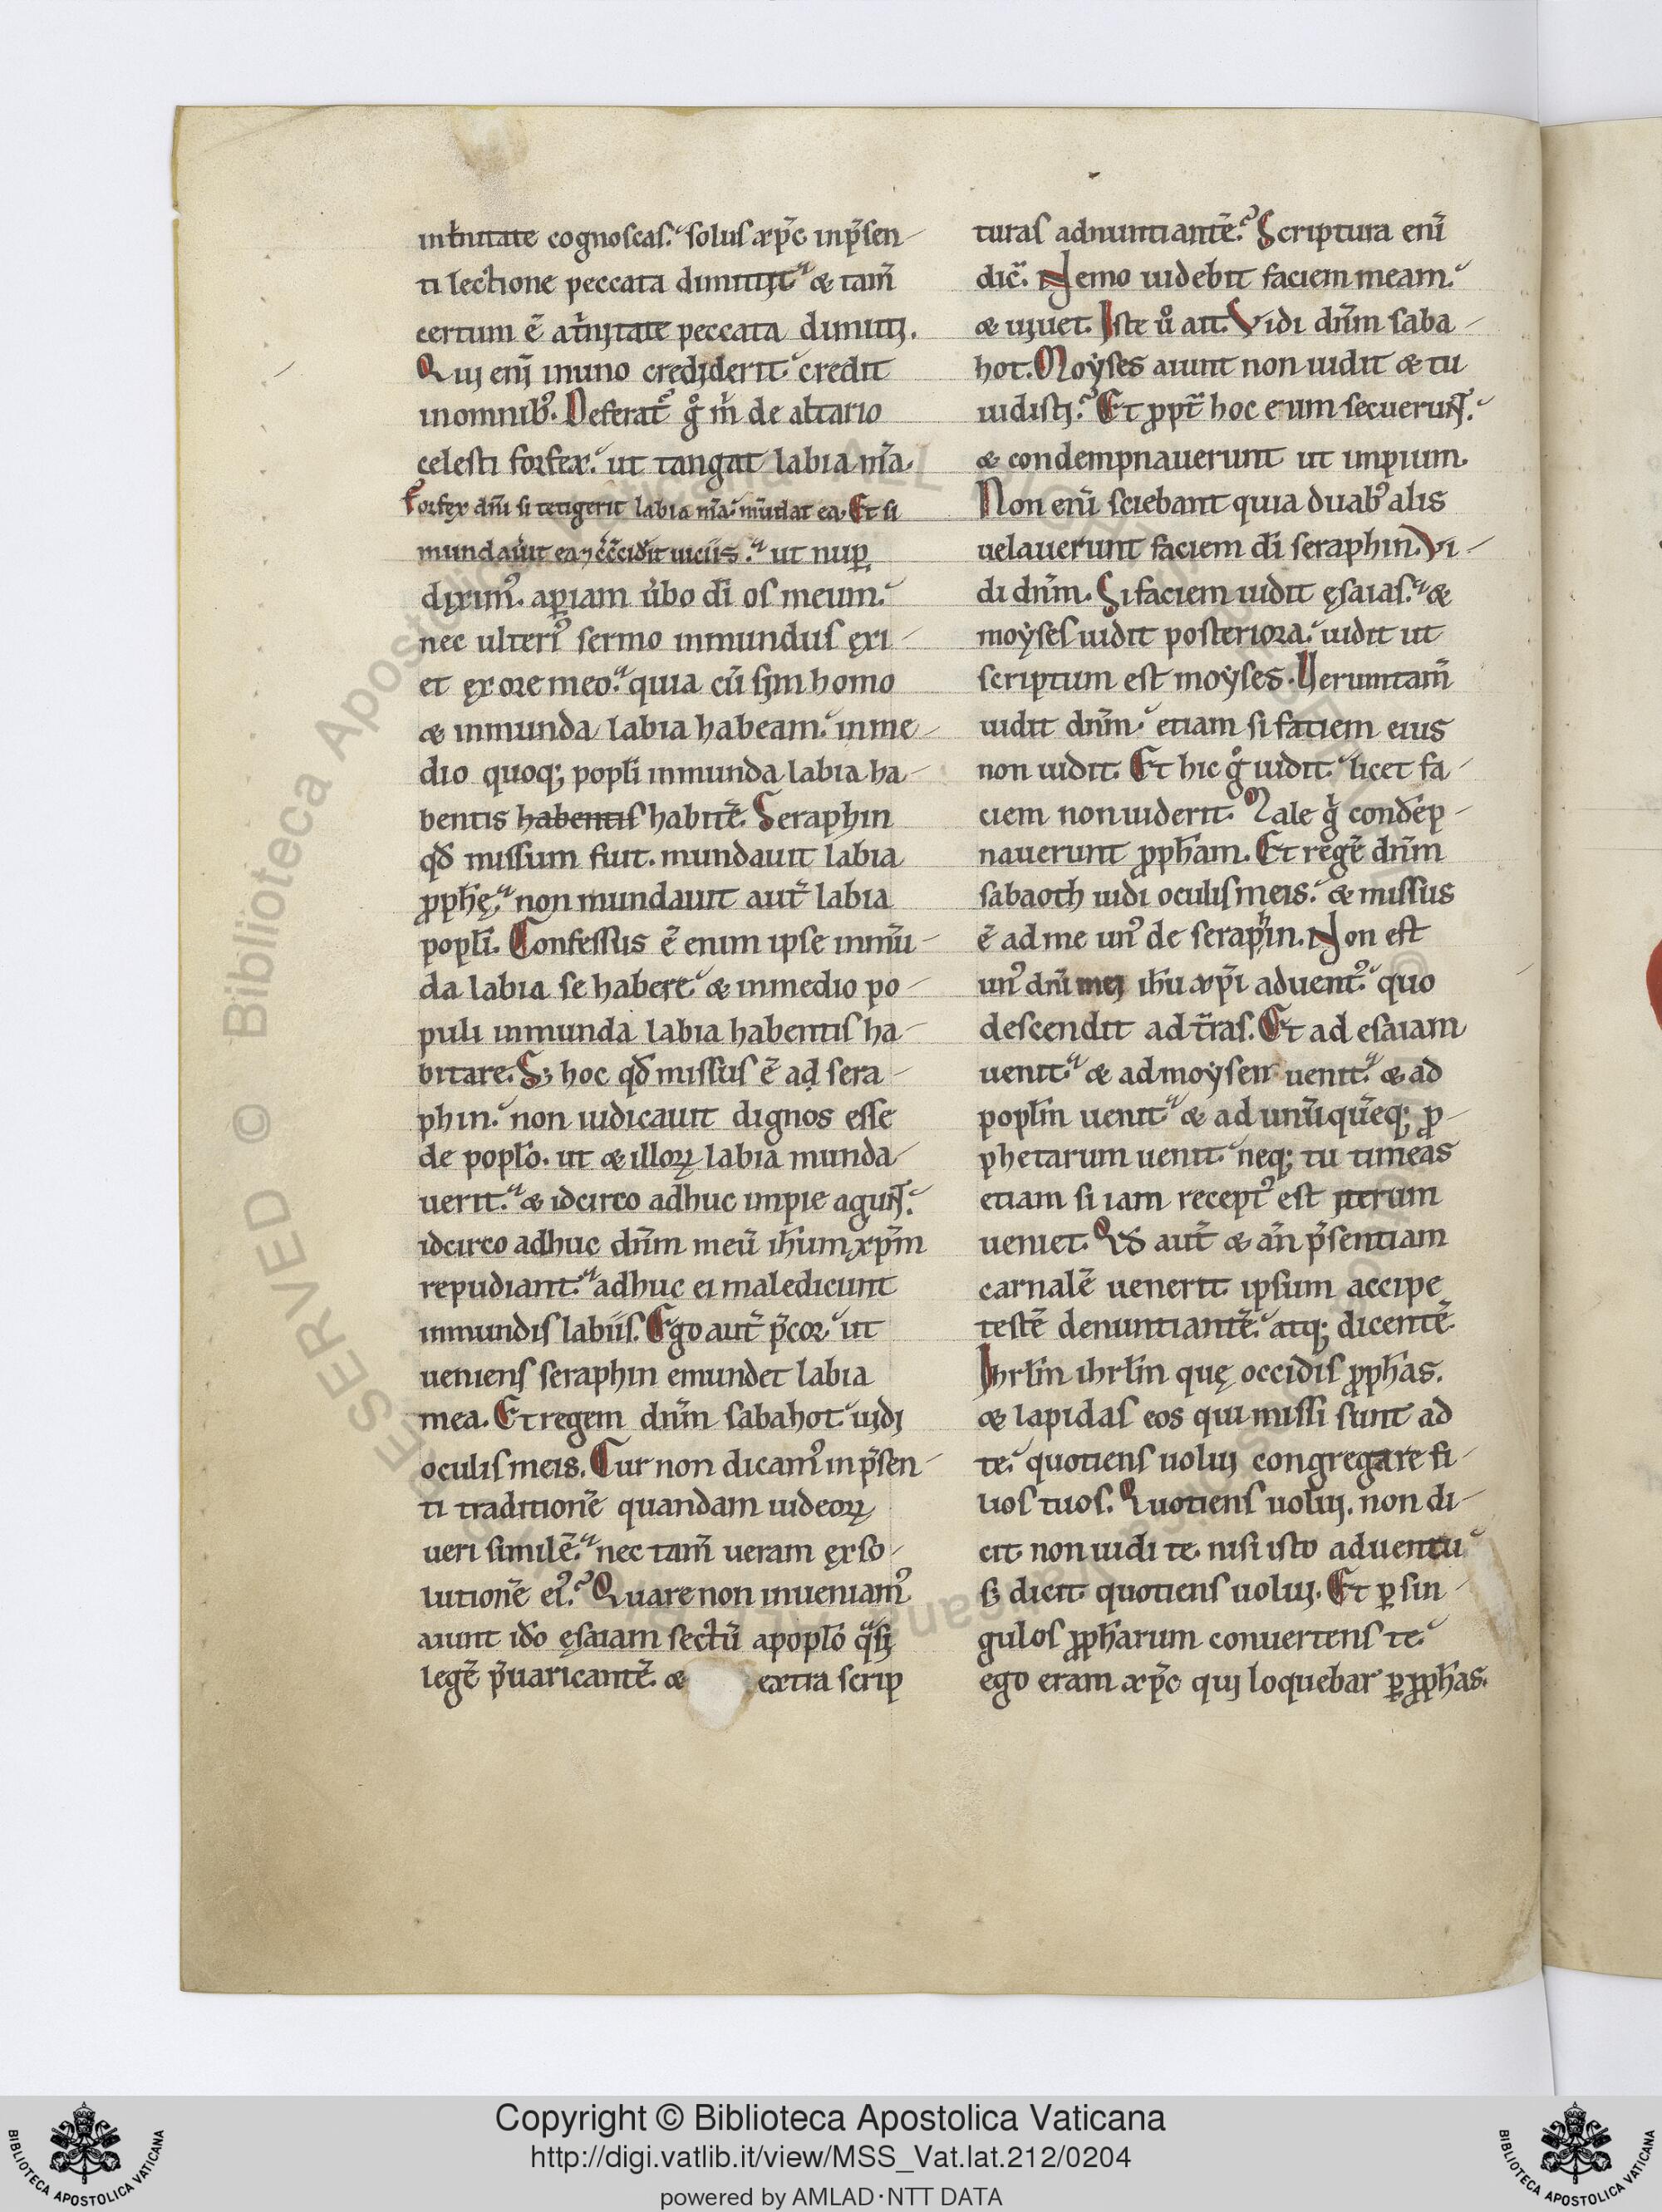 int̃nitate cognoſcaſ. ſoluſ xp̃c inp̃ſen-
ti lectione peccata dimittit & tam̃
certum ẽ at̃nitate peccata dimitti.
Qui eni inuno crediderit credit
inomnib᷒. Deferat᷒ gͦ m̃ de altario
celeſti forfex. ut tangat labia nr̃a.
Forfex dñi ſi tetigerit labia nr̃a. mũdat ea. Et ſi
ut nuꝑ
diximꝰ. aperiam ũbo dĩ oſ meum.
nec ulteriꝰ ſermo inmunduſ exi-
et ex ore meo. quia cũ ſim homo
& inmunda labia habeam. inme-
dio quoq; popłi inmunda labia ha-
bentis habentiſ habitẽ. Seraphin
qđ miſſum fuit. mundauit labia
ꝓpħę. non mundauit aut̃ labia
popłi. Confeſſus ẽ enim ipſe inmũ-
da labia ſe habere & inmedio po-
puli inmunda labia habentiſ ha-
bitare. S; hoc qđ miſſuſ ẽ ad ſera-
phin. non iudicauit dignos eſſe
de popło. ut & illoꝝ labia munda-
uerit. & idcirco adhuc impie agunt.
idcirco adhuc dñm meũ iħum xp̃m
repudiant. adhuc ei maledicunt
inmundiſ labiiſ. Ego aut̃ p̃cor ut
ueniens ſeraphin emundet labia
mea. Et regem dñm ſabahot uidi
oculiſ meis. Cur non dicamꝰ in p̃ſen-
ti traditionẽ quandam iudeoꝝ
ueri ſimilẽ. nec tam̃ ueram exſo-
lutionẽ eiꝰ. Quare non inueniamꝰ
aiunt iđo ęſaiam ſectũ apopło qͣſi
legẽ p̃uaricantẽ. & extra ſcrip
turaſ adnuntiantẽ. Scriptura enĩ
dic̃. Nemo uidebit faciem meam.
& uiuet. Iſte uͦ ait. Vidi dñm ſaba-
hot. Moẏſes aiunt non uidit & tu
uidiſti. Et ꝓpt̃ hoc eum ſecuerunt.
& condempnauerunt ut impium.
Non enĩ ſciebant quia duabꝰ alis
uelauerunt faciem dĩ ſeraphin. Vi-
di dñm. Si faciem uidit ęſaiaſ. &
moẏſeſ uidit poſteriora. uidit ut
ſcriptum eſt moẏſes. Veruntam̃
uidit dñm. etiam ſi fatiem eius
non uidit. Et hic gͦ uidit. licet fa-
ciem non uiderit. Male gͦ condẽp-
nauerunt ꝓpħam. Et regẽ dñm
ſabaoth uidi oculiſ meis. & miſſus
ẽ ad me unꝰ de ſeraphin. Non eſt
unꝰ dñi mei iħu xp̃i aduentꝰ quo
deſcendit ad t̃raſ. Et ad eſaiam
uenit. & ad moẏſen uenit. & ad
popłm uenit & ad unũquẽq; ꝓ-
phetarum uenit. neq; tu timeas
etiam ſi iam receptꝰ eſt iterum
ueniet. Qđ aut̃ & añ p̃ſentiam
carnalẽ uenerit ipſum accipe
teſtẽ denuntiantẽ. atq; dicentẽ.
Ihrłm ihrłm quę occidiſ ꝓpħas.
& lapidaſ eos qui miſſi ſunt ad
te. quotienſ uolui congregare fi-
lios tuoſ. Quotienſ uolui. non di-
cit non uidi te niſi iſto aduentu
ſ; dicit quotienſ uolui. Et ꝑ ſin-
guloſ ꝓpħarum conuertenſ te.
ego eram xp̃c qui loquebar ꝑ ꝓpħas.
Copyright © Biblioteca Apostolica Vaticana
http://digi.vatlib.it/view/MSS_Vat.lat.212/0204
powered by AMLAD·NTT DATA
BIBLIOTECA APOSTOLICA VATICANA
BIBLIOTECA APOSTOLICA VATICANA